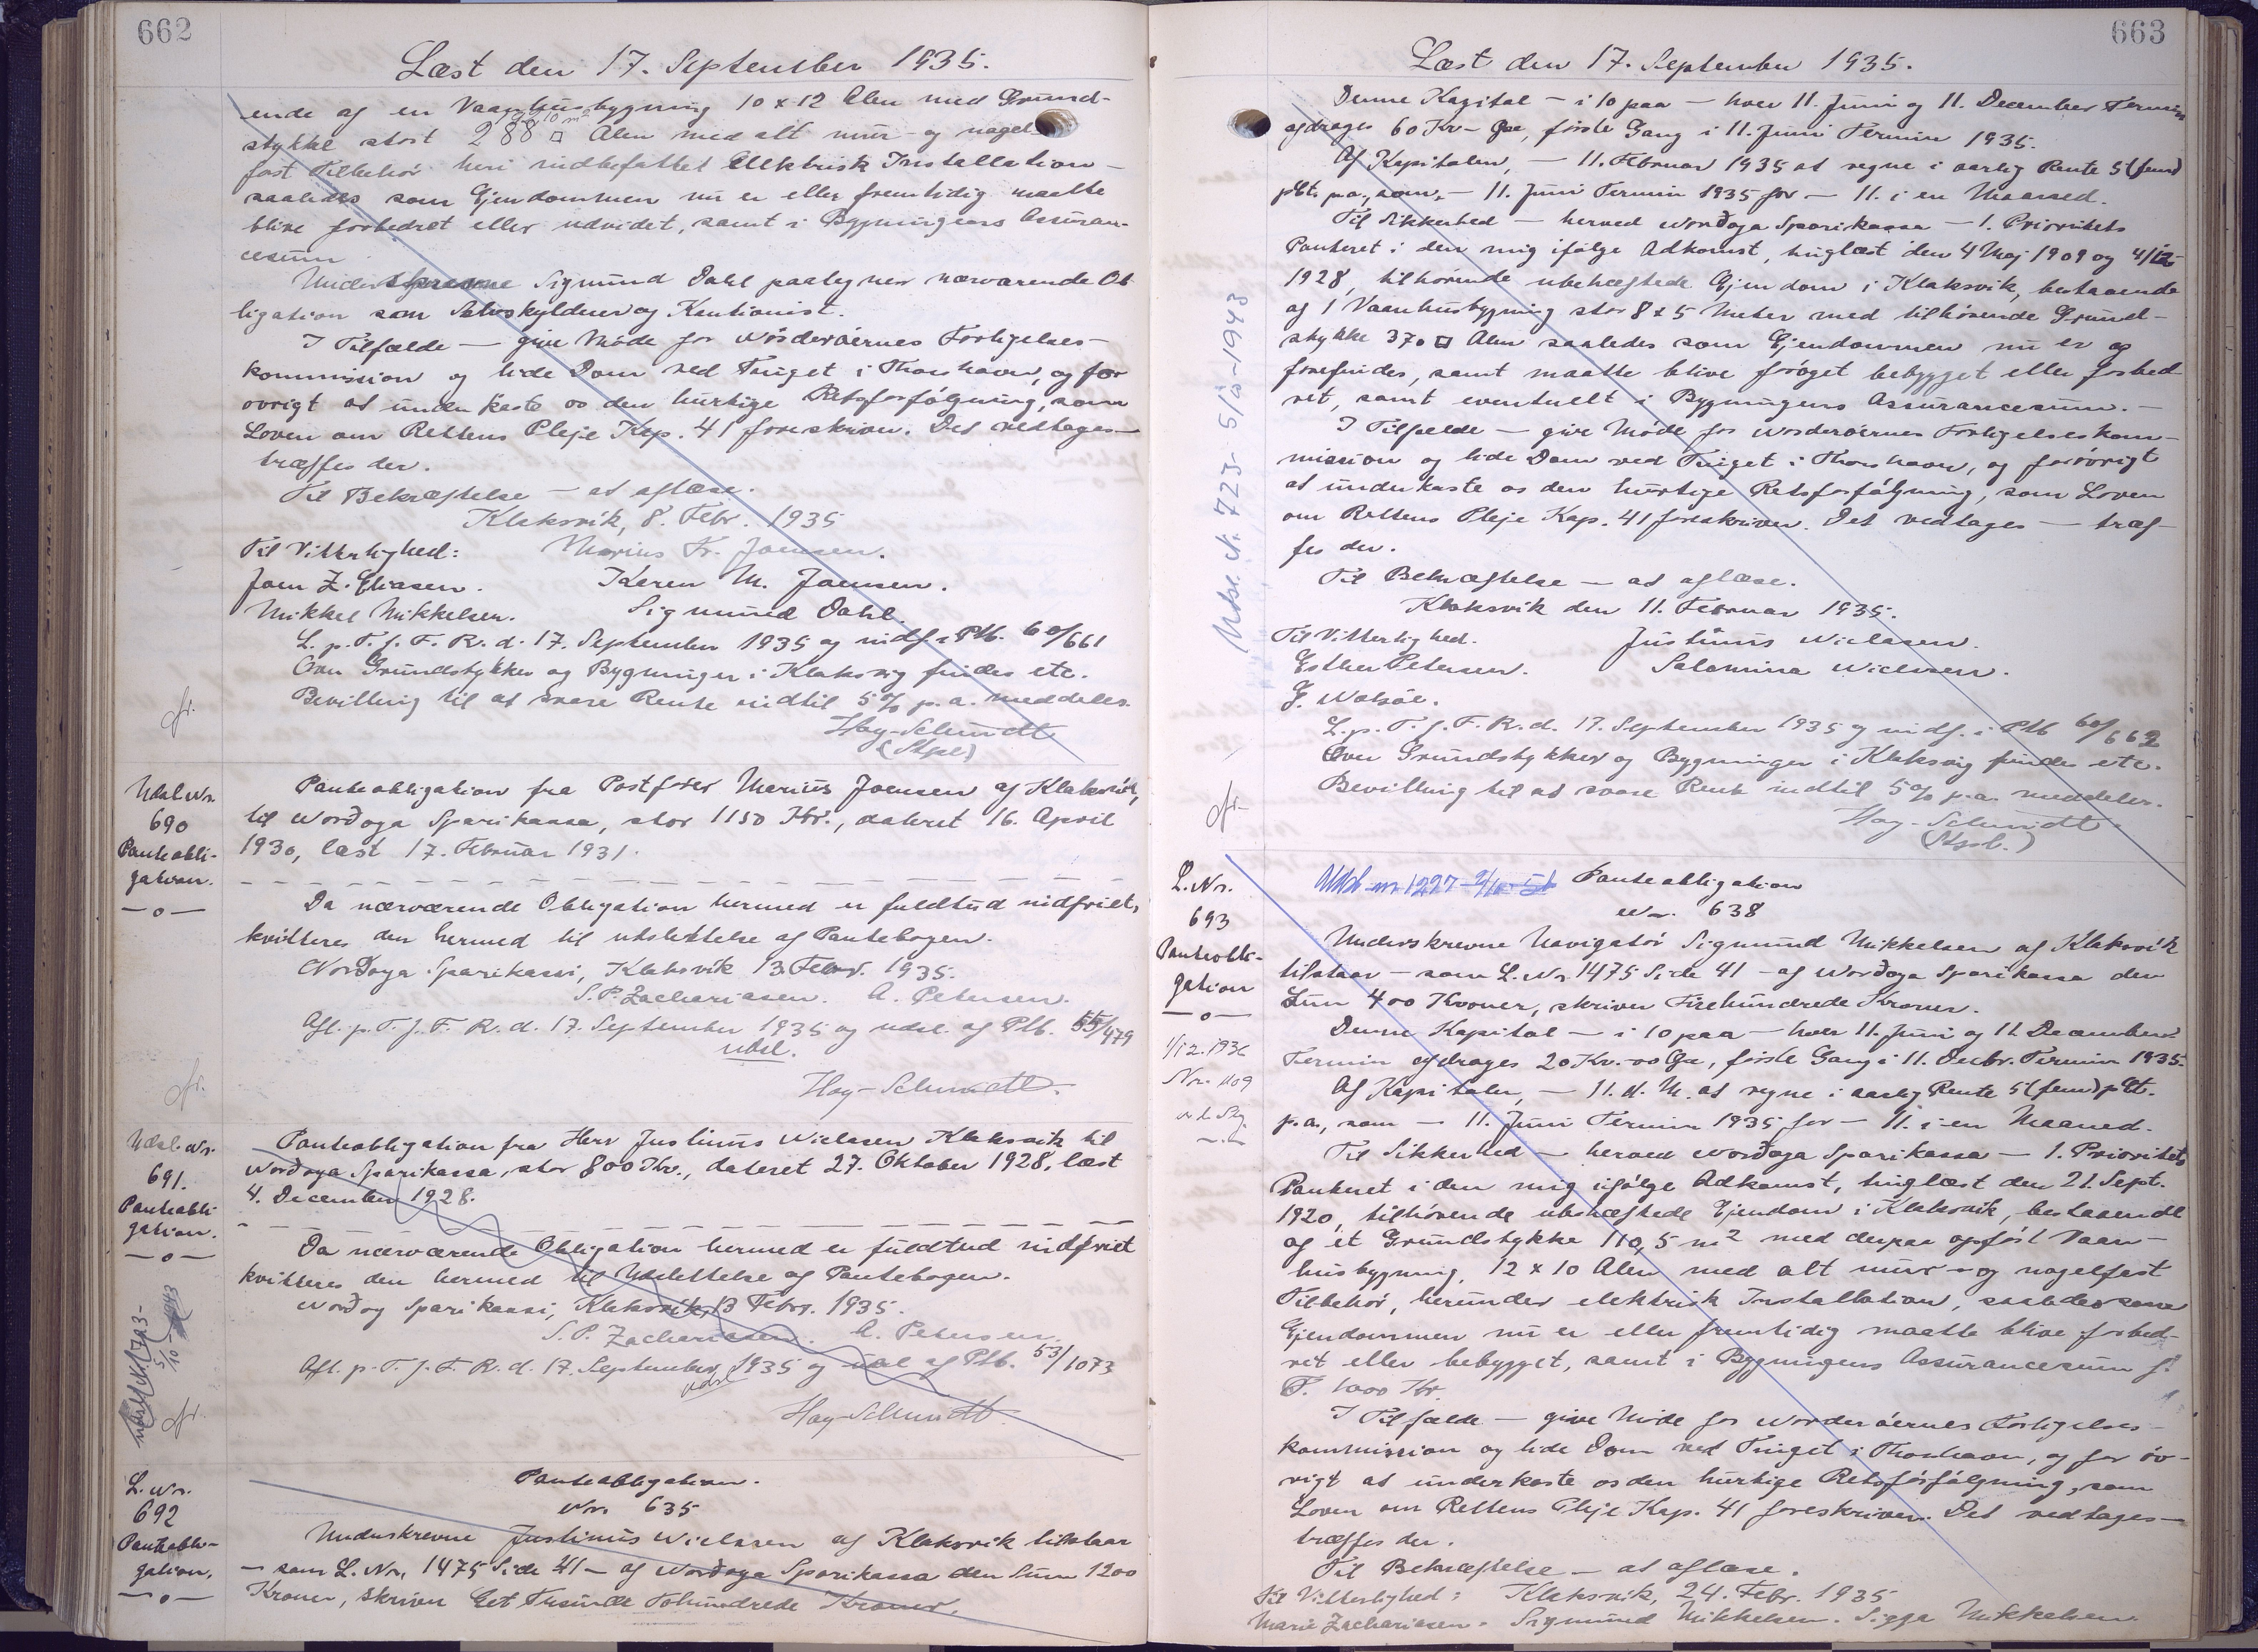 662
Læst den 17. September 1935.
ende af en Vaanhusbygning 10 x 12 Alen med Grund-
stykke stort 288 □ Alen med alt mur- og nagel-
fast Tilbehör heri indbefattet Elektrisk Installation -
saaledes som Ejendommen nu er eller fremtidig maatte
blive forbedret eller udvidet, samt i Bygningens Assuran-
cesum.
Underskrevne Sigmund Dahl paategner nærværende Ob-
ligation som Selvskyldner og Kautionist.
I Tilfælde — give Möde for Norderöernes Forligelses-
kommission og lide Dom ved Tinget i Thorshavn, og for
övrigt at underkaste os den hurtige Retsforfölgning, som
Loven om Rettens Pleje Kap. 41 foreskriver. Det vedtages —
træffes der.
Til Bekræftelse — at aflæse.
Klaksvik, 8. Febr. 1935
Til Vitterlighed: Marius Fr. Joensen.
Joen Z. Eliasen. Karen M. Joensen.
Mikkel Mikkelsen. Sigmund Dahl.
L. p. T. f. F. R. d. 17. September 1935 og indf. i Ptb. 60/661
Over Grundstykker og Bygninger i Klaksvig findes etc.
Bevilling til at svare Rente indtil 5 % p. a. meddeles.
Hay-Schmidt
(Stpl)
Udsl. Nr.
690
Panteobli-
gation.
—o—
Panteobligation fra Postförer Marius Joensen af Klaksvik,
til Nordoya Sparikassa, stor 1150 Kr., dateret 16. April
1930, læst 17. Februar 1931.
Da nærværende Obligation hermed er fuldtud indfriet,
kvitteres den hermed til udslettelse af Pantebogen.
Norðoya Sparikassi, Klaksvik 13. Febr. 1935.
S. P. Zachariasen. A. Petersen.
Afl. p. T. f. F. R. d. 17. September 1935 og udsl. af Ptb. 55/479
udsl.
Hay-Schmidt.
Udsl. Nr.
691.
Panteobli-
gation.
—o—
Panteobligation fra Herr Justinus Nielasen Klaksvik til
Norðoya Sparikassa, stor 800 Kr., dateret 27. Oktober 1928, læst
4. December 1928.
Da nærværende Obligation hermed er fuldtud indfriet
kvitteres den hermed til Udslettelse af Pantebogen.
Norðoy Sparikassi, Klaksvik, 13 Febr. 1935.
S. P. Zachariasen. A. Petersen.
Afl. p. T. f. F. R. d. 17. September 1935 og udsl af Ptb. 53/1073
udsl
Hay-Schmidt
L. Nr.
692
Panteobli-
gation.
—o—
Panteobligation.
Nr. 635
Underskrevne Justinus Nielasen af Klaksvik tilstaar
— som L. Nr. 1475 Side 41 — af Norðoya Sparikassa den Sum 1200
Kroner, skriver Eet Tusinde Tohundrede Kroner.
663
Læst den 17. September 1935.
Denne Kapital — i 10 paa — hver 11. Juni og 11. December Termin
afdrages 60 Kr — Øre, förste Gang i 11. Juni Termin 1935.
Af Kapitalen, — 11. Februar 1935 at regne i aarlig Rente 5 (fem)
pCt. p.a., som — 11. Juni Termin 1935 for — 11. i en Maaned.
Til Sikkerhed — herved Norðoya Sparikassa — 1. Prioritets
Panteret i den mig ifølge Adkomst, tinglæst den 4 Maj 1909 og 4/12
1928, tilhörende ubehæftede Ejendom i Klaksvik, bestaaende
af 1 Vaanhusbygning stor 8 x 5 Meter med tilhörende Grund-
stykke 370 □ Alen saaledes som Ejendommen nu er og
forefindes, samt maatte blive foröget bebygget eller forbed-
ret, samt eventuelt i Bygningens Assurancesum. —
I Tilfælde — give Möde for Norderöernes Forligelseskom-
mission og lide Dom ved Tinget i Thorshavn, og forövrigt
at underkaste os den hurtige Retsforfölgning, som Loven
om Rettens Pleje Kap. 41 foreskriver. Det vedtages — træf-
fes der.
Til Bekræftelse — at aflæse.
Klaksvik den 11. Februar 1935.
Til Vitterlighed. Justinus Nielasen.
Esther Petersen. Salomina Nielasen.
L. p. T. f. F. R. d. 17. September 1935 og indf. i Ptb 60/662
Over Grundstykker og Bygninger i Klaksvig findes etc.
Bevilling til at svare Rente indtil 5 % p. a. meddeles.
Hay-Schmidt.
(Stpl.)
L. Nr.
693
Panteobli-
gation
—o—
1/12. 1936
Panteobligation
Nr. 638
Underskrevne Navigatör Sigmund Mikkelsen af Klaksvik
tilstaar — som L. Nr. 1475 Side 41 — af Norðoya Sparikassa den
Sum 400 Kroner, skriver Firehundrede Kroner.
Denne Kapital — i 10 paa — hver 11. Juni og 11. December
Termin afdrages 20 Kr. 00 Øre, förste Gang i 11. Decbr. Termin 1935.
Af Kapitalen, — 11. d. M. at regne i aarlig Rente 5 (fem) pCt.
p.a., som — 11. Juni Termin 1935 for — 11. i en Maaned.
Til Sikkerhed — herved Norðoya Sparikassa — 1. Prioritets
Panteret i den mig ifölge Adkomst, tinglæst den 21. Sept.
1920, tilhörende ubehæftede Ejendom i Klaksvik, bestaaende
af et Grundstykke 110,5 m2 med derpaa opfört Vaan-
husbygning, 12 x 10 Alen med alt mur- og nagelfast
Tilbehör, herunder elektrisk Installation, saaledes som
Ejendommen nu er eller fremtidig maatte blive forbed-
ret eller bebygget, samt i Bygningens Assurancesum f.
T. 1000 Kr.
I Tilfælde — give Möde for Norderöernes Forligelses-
kommission og lide Dom ved Tinget i Thorshavn, og for öv-
rigt at underkaste os den hurtige Retsforfölgning, som
Loven om Rettens Pleje Kap. 41 foreskriver. Det vedtages —
træffes der.
Til Bekræftelse — at aflæse.
Til Vitterlighed: Klaksvik, 24. Febr. 1935
Marie Zachariasen. Sigmund Mikkelsen. Sigga Mikkelsen